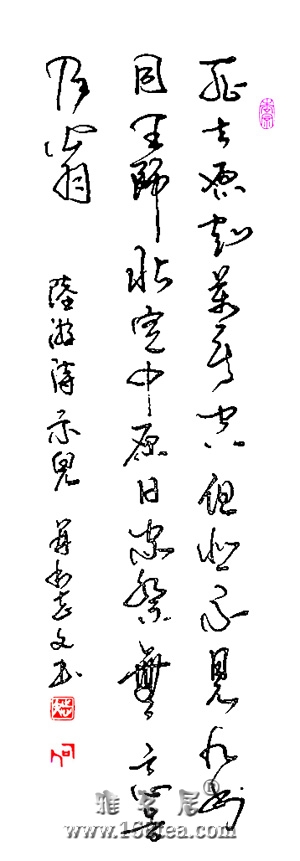 死去原知萬事空但悲不見九州
同王師北定中原日家祭無忘告
乃翁
陸游詩示兒
志文书
雅茗居®